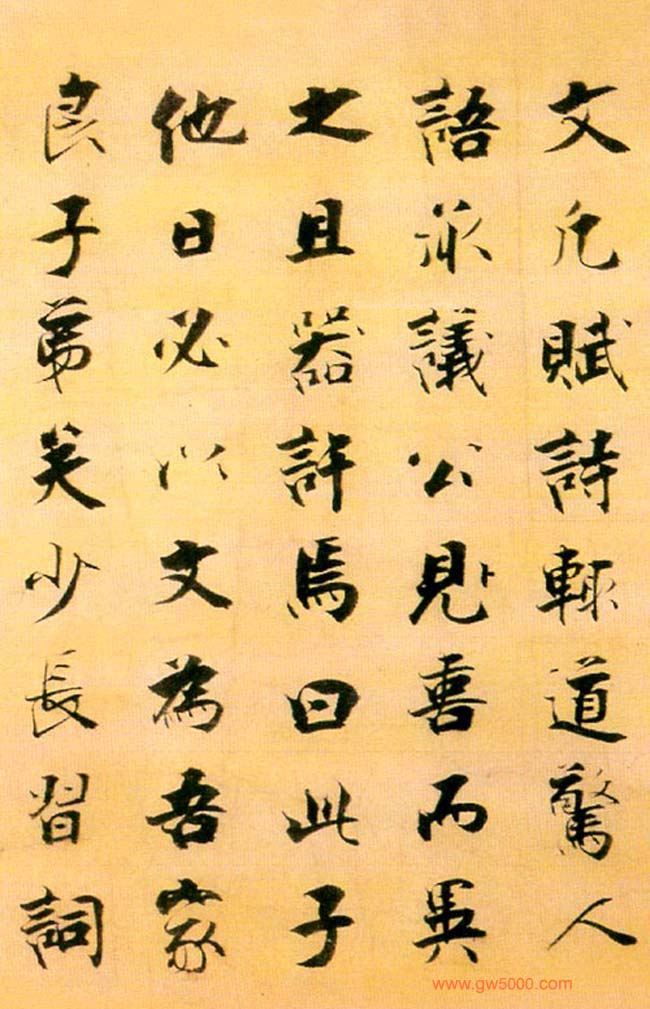 文凡賦詩輙道驚人
語承議公見喜而異
之且器許焉曰此子
他日必以文為吾家
良子弟矣少長習詞
www.gw5000.com